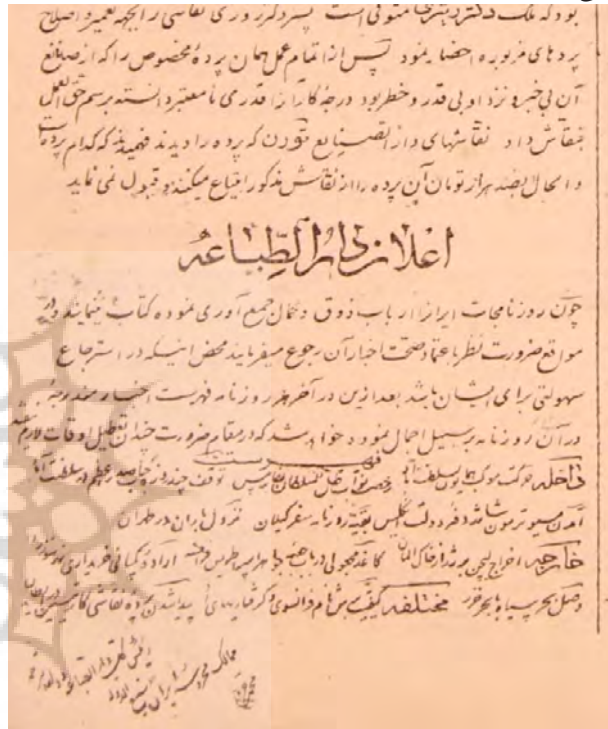 بود که ملک دکتر دیترخا متوفی است پسر دکتر روزی نقاشی را بجهه تعمیر و اصلاح
پردهای مزبوره احضار نمود پس از اتمام عمل همان پردهٔ مخصوص را که از صنایع
آن بی‌خبر و نزد او بی قدر و خطر بود درجهٔ کار او را از قدری نامعتبر دانسته برسم حق العمل
بنقاش داد نقاشهای دار الصنایع که پرده را دیدند فهمیدند که کدام پرده است
و الحال بصد هزار تومان آن پرده را از نقاش مذکور ابتیاع میکنند و قبول نمی نماید
اعلان دار الطباعه
چون روزنامجات ایران را ارباب ذوق و کمال جمع آوری نموده کتاب مینمایند و در
مواقع ضرورت نظر باعتماد صحت اخبار آن رجوع میفرمایند محض اینکه در استرجاع
سهولتی برای ایشان باشد بعد ازین در آخر هر روزنامه فهرست اخبار مندرجهٔ
در آن روزنامه بر سبیل اجمال نموده خواهد شد که در مقام ضرورت چندان تعطیل اوقات لازم نیفتد
فهرست
داخله حرکت موکب همایون بسلطنت آباد توقف چند روز جناب صدر اعظم در سلطنت آباد
آمدن مسیو تومسون شارژدافر دولت انگلیس بقیهٔ روزنامه سفر گیلان نزول باران در طهران
خارجه اخراج از خاک آلمان کاغذ مجهولی در باب
وصل بحر سیاه به بحر خزر مختلفه پیدا شدن پرده نقاشی
ممالک محروسه ایران صنیع الدوله